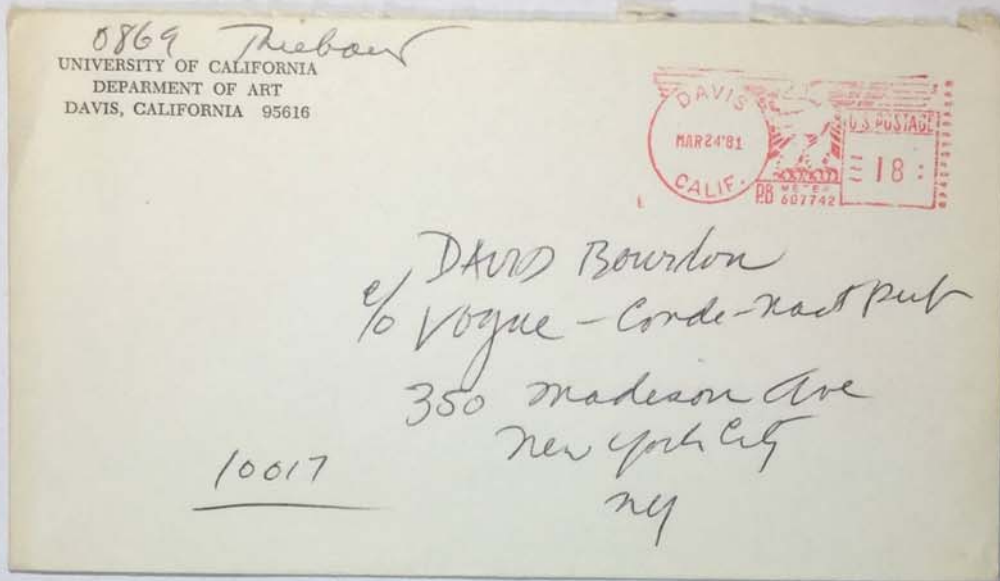 0869 Thiebaud
UNIVERSITY OF CALIFORNIA
DEPARMENT OF ART
DAVIS, CALIFORNIA 95616
DAVIS
MAR 24 '81
CALIF.
U.S. POSTAGE
18
PB METER
607742
DAVID Bourdon
c/o Vogue - Conde-Nast Pub
350 Madison Ave
New York City
NY
10017